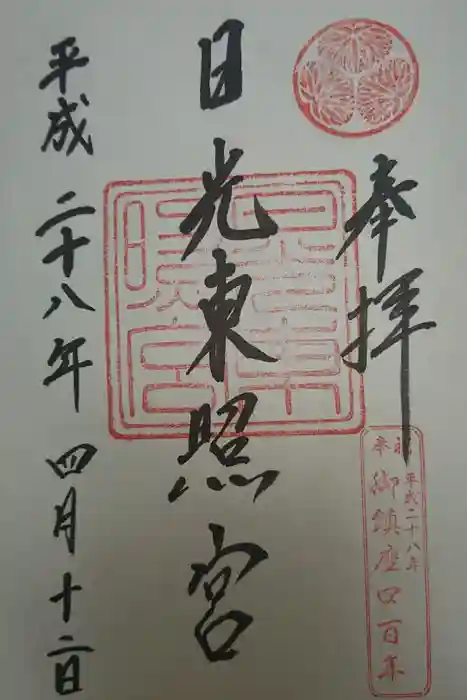 奉拝
日光東照宮
平成二十八年 四月十二日
平成二十八年
御鎮座四百年